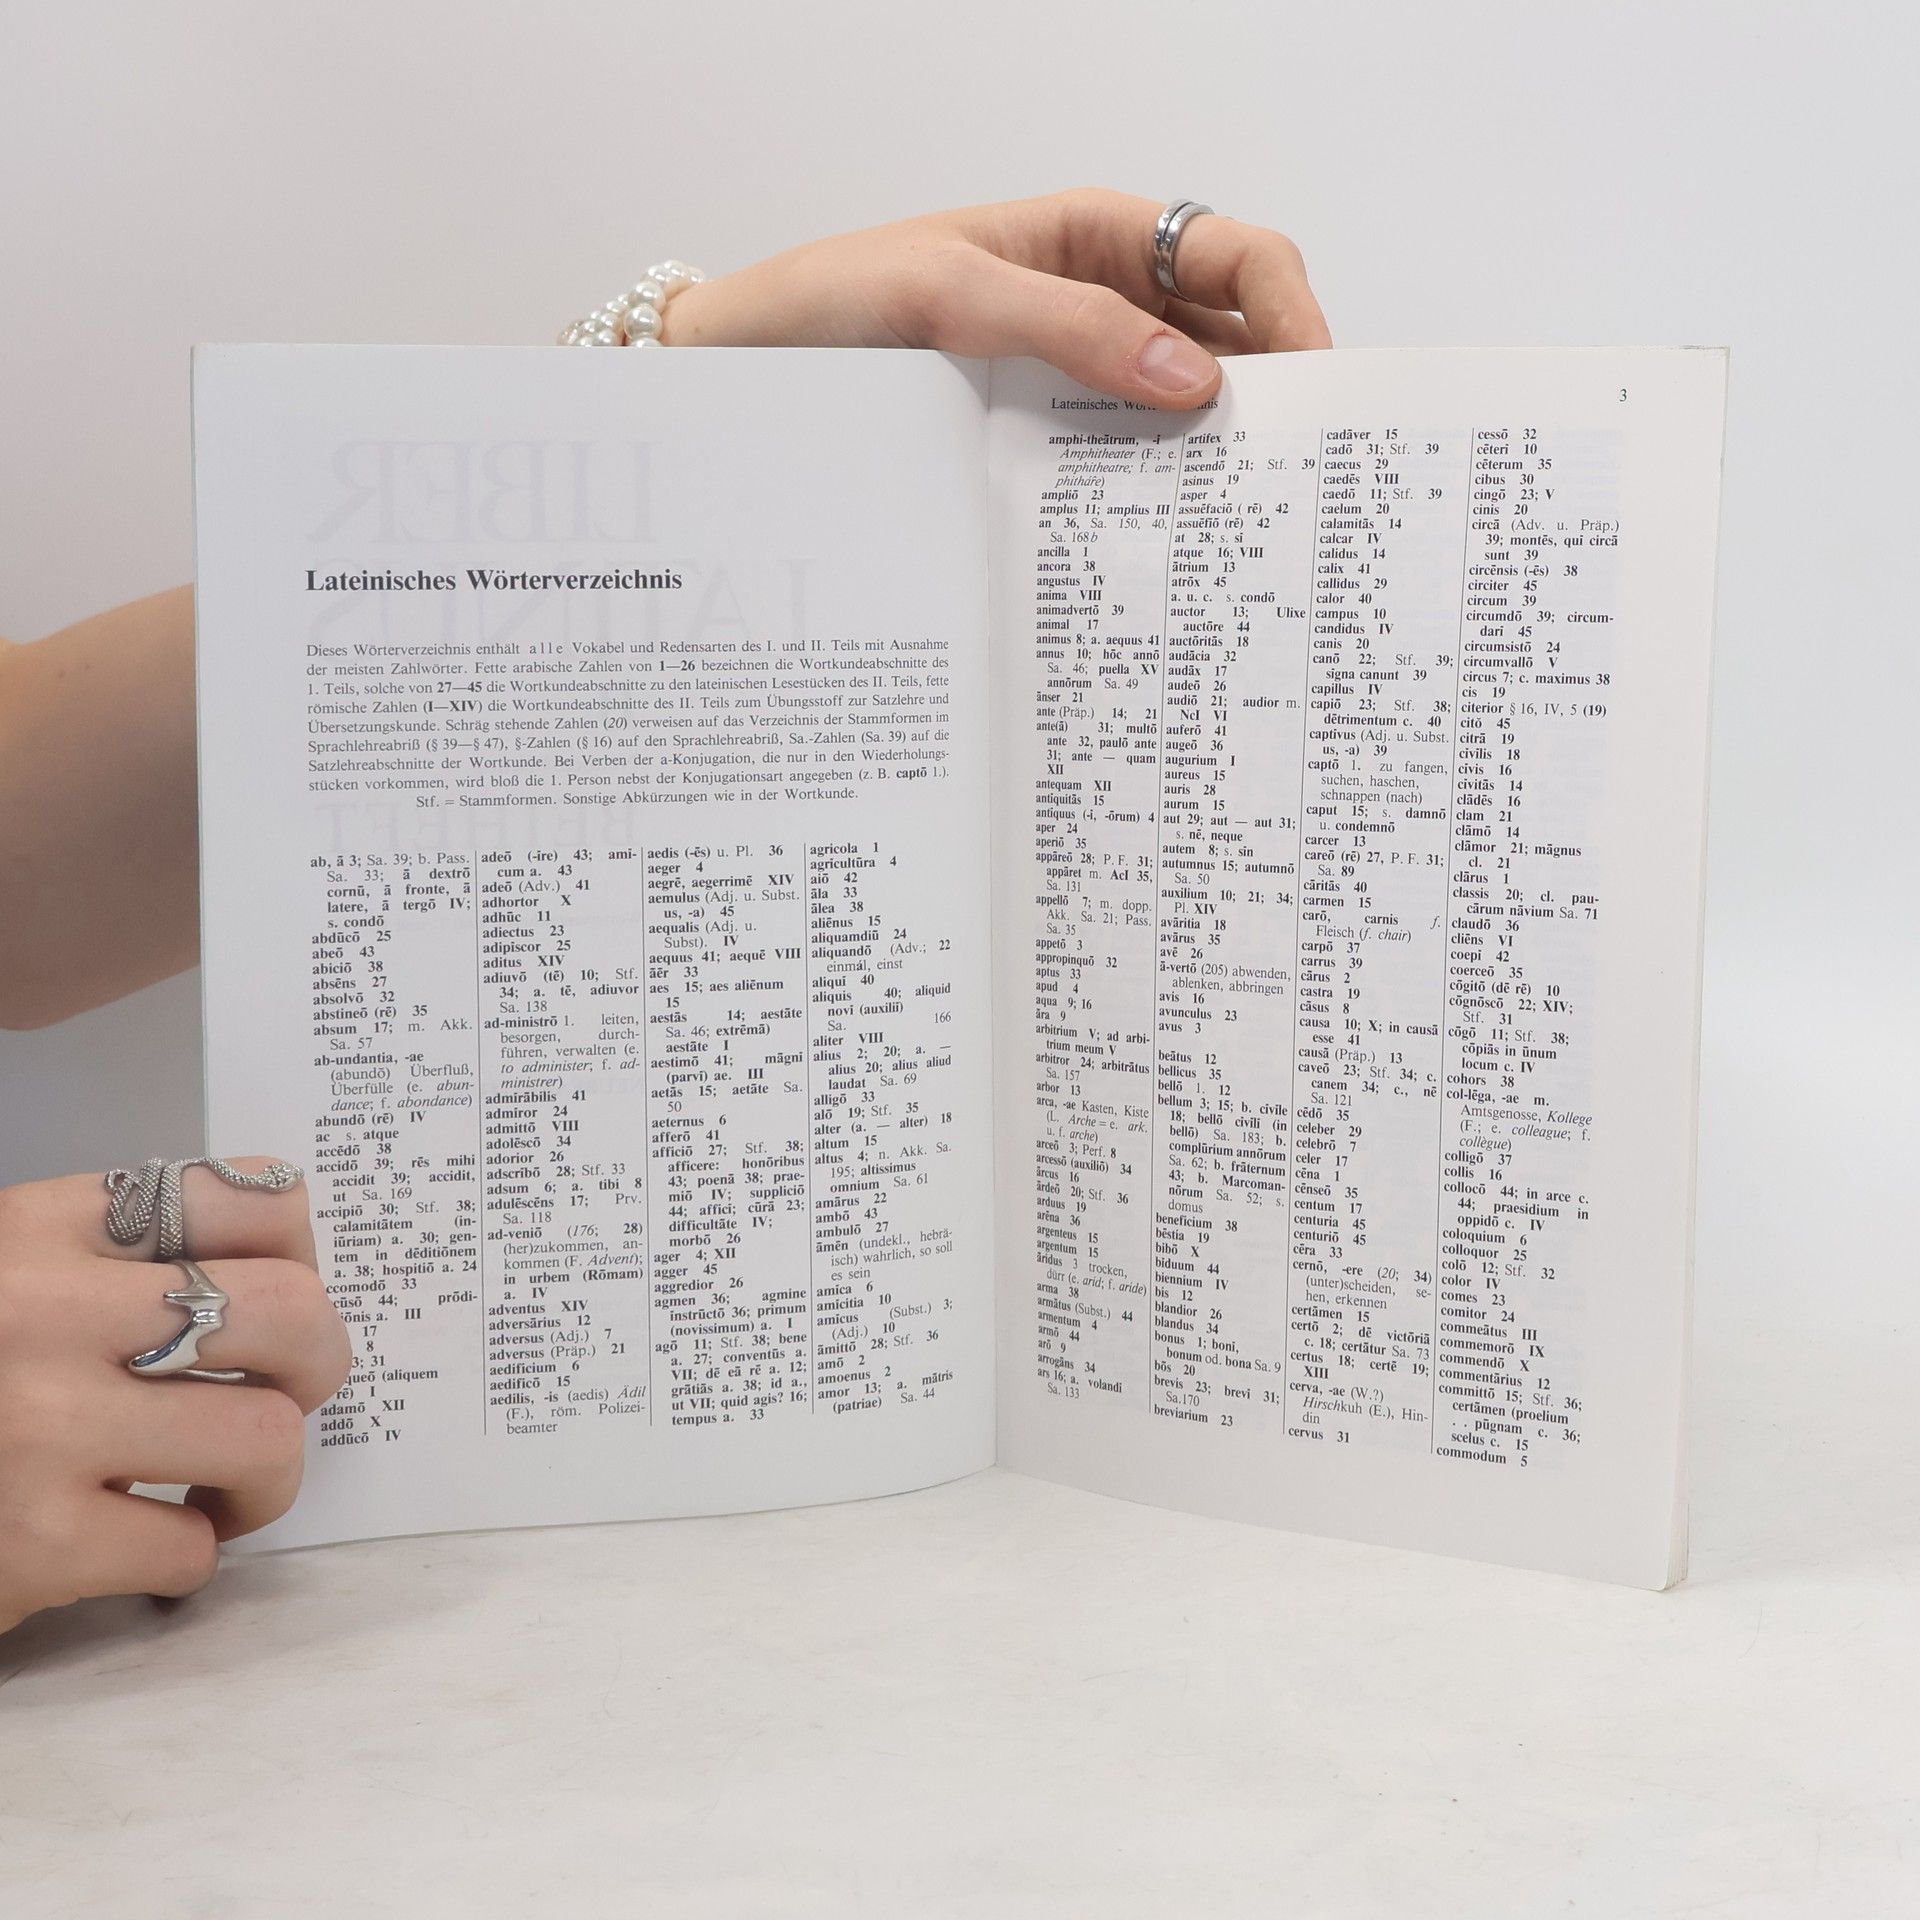 Lateinisches Wörterverzeichnis
Dieses Wörterverzeichnis enthält alle Vokabel und Redensarten des I. und II. Teils mit Ausnahme
der meisten Zahlwörter. Fette arabische Zahlen von 1—26 bezeichnen die Wortkundeabschnitte des
1. Teils, solche von 27—45 die Wortkundeabschnitte zu den lateinischen Lesestücken des II. Teils, fette
römische Zahlen (I—XIV) die Wortkundeabschnitte des II. Teils zum Übungsstoff zur Satzlehre und
Übersetzungskunde. Schräg stehende Zahlen (20) verweisen auf das Verzeichnis der Stammformen im
Sprachlehreabriß (§ 39—§ 47), §-Zahlen (§ 16) auf den Sprachlehreabriß, Sa.-Zahlen (Sa. 39) auf die
Satzlehreabschnitte der Wortkunde. Bei Verben der a-Konjugation, die nur in den Wiederholungs-
stücken vorkommen, wird bloß die 1. Person nebst der Konjugationsart angegeben (z. B. captō 1.).
Stf. = Stammformen. Sonstige Abkürzungen wie in der Wortkunde.
ab, ā 3; Sa. 39; b. Pass.
Sa. 33; ā dextrō
cornū, ā fronte, ā
latere, ā tergō IV;
s. condō
abdūcō 25
abeō 43
abiciō 38
absēns 27
absolvō 32
abstineō (rē) 35
absum 17; m. Akk.
Sa. 57
ab-undantia, -ae
(abundō) Überfluß,
Überfülle (e. abun-
dance; f. abondance)
abundō (rē) IV
ac s. atque
accēdō 38
accidō 39; rēs mihi
accidit 39; accidit,
ut Sa. 169
accipiō 30; Stf. 38;
calamitātem (in-
iūriam) a. 30; gen-
tem in dēditiōnem
a. 38; hospitiō a. 24
ccomodō 33
cūsō 44; prōdi-
iōnis a. III
17
8
3; 31
queō (aliquem
rē) I
adamō XII
addō X
addūcō IV
adeō (-īre) 43; ami-
cum a. 43
adeō (Adv.) 41
adhortor X
adhūc 11
adiectus 23
adipiscor 25
aditus XIV
adiuvō (tē) 10; Stf.
34; a. tē, adiuvor
Sa. 138
ad-ministrō 1. leiten,
besorgen, durch-
führen, verwalten (e.
to administer; f. ad-
ministrer)
admīrābilis 41
admīror 24
admittō VIII
adolēscō 34
adorior 26
adscrībō 28; Stf. 33
adsum 6; a. tibi 8
adulēscēns 17; Prv.
Sa. 118
ad-veniō (176; 28)
(her)zukommen, an-
kommen (F. Advent);
in urbem (Rōmam)
a. IV
adventus XIV
adversārius 12
adversus (Adj.) 7
adversus (Präp.) 21
aedificium 6
aedificō 15
aedīlis, -is (aedis) Ädil
(F.), röm. Polizei-
beamter
aedis (-ēs) u. Pl. 36
aeger 4
aegrē, aegerrimē XIV
aemulus (Adj. u. Subst.
us, -a) 45
aequalis (Adj. u.
Subst). IV
aequus 41; aequē VIII
āēr 33
aes 15; aes aliēnum
15
aestās 14; aestāte
Sa. 46; extrēmā)
aestāte I
aestimō 41; māgnī
(parvī) ae. III
aetās 15; aetāte Sa.
50
aeternus 6
afferō 41
afficiō 27; Stf. 38;
afficere: honōribus
43; poenā 38; prae-
miō IV; suppliciō
44; affici; cūrā 23;
difficultāte IV;
morbō 26
ager 4; XII
agger 45
aggredior 26
agmen 36; agmine
instrūctō 36; primum
(novissimum) a. I
agō 11; Stf. 38; bene
a. 27; conventūs a.
VII; dē eā rē a. 12;
grātiās a. 38; id a.,
ut VII; quid agis? 16;
tempus a. 33
agricola 1
agricultūra 4
aiō 42
āla 33
ālea 38
aliēnus 15
aliquamdiū 24
aliquandō (Adv.; 22
einmál, einst
aliquī 40
aliquis 40; aliquid
novi (auxiliī)
Sa. 166
aliter VIII
alius 2; 20; a. —
alius 20; alius aliud
laudat Sa. 69
alligō 33
alō 19; Stf. 35
alter (a. — alter) 18
altum 15
altus 4; n. Akk. Sa.
195; altissimus
omnium Sa. 61
amārus 22
ambō 43
ambulō 27
āmēn (undekl., hebrä-
isch) wahrlich, so soll
es sein
amīca 6
amīcitia 10
amīcus (Subst.) 3;
(Adj.) 10
āmittō 28; Stf. 36
amō 2
amoenus 2
amor 13; a. mātris
(patriae) Sa. 44
Lateinisches
3
amphi-theātrum, -ī
Amphitheater (F.; e.
amphitheatre; f. am-
phithâfre)
ampliō 23
amplus 11; amplius III
an 36, Sa. 150, 40,
Sa. 168b
ancilla 1
ancora 38
angustus IV
anima VIII
animadvertō 39
animal 17
animus 8; a. aequus 41
annus 10; hōc annō
Sa. 46; puella XV
annōrum Sa. 49
ānser 21
ante (Präp.) 14; 21
ante(ā) 31; multō
ante 32, paulō ante
31; ante — quam
XII
antequam XII
antiquitās 15
antīquus (-i, -ōrum) 4
aper 24
aperiō 35
appāreō 28; P. F. 31;
appāret m. AcI 35,
Sa. 131
appellō 7; m. dopp.
Akk. Sa. 21; Pass.
Sa. 35
appetō 3
appropinquō 32
aptus 33
apud 4
aqua 9; 16
āra 9
arbitrium V; ad arbi-
trium meum V
arbitror 24; arbitrātus
Sa. 157
arbor 13
arca, -ae Kasten, Kiste
(L. Arche = e. ark.
u. f. arche)
arceō 3; Perf. 8
arcessō (auxiliō) 34
arcus 16
ārdeō 20; Stf. 36
arduus 19
arēna 36
argenteus 15
argentum 15
āridus 3 trocken,
dürr (e. arid; f. aride)
arma 38
armātus (Subst.) 44
armentum 4
armō 44
arō 9
arrogāns 34
ars 16; a. volandi
Sa. 133
artifex 33
arx 16
ascendō 21; Stf. 39
asinus 19
asper 4
assuēfaciō ( rē) 42
assuēfīō (rē) 42
at 28; s. sī
atque 16; VIII
ātrium 13
atrōx 45
a. u. c. s. condō
auctor 13; Ulixe
auctōre 44
auctōritās 18
audācia 32
audāx 17
audeō 26
audiō 21; audior m.
NcI VI
auferō 41
augeō 36
augurium I
aureus 15
auris 28
aurum 15
aut 29; aut — aut 31;
s. nē, neque
autem 8; s. sin
autumnus 15; autumnō
Sa. 50
auxilium 10; 21; 34;
Pl. XIV
avāritia 18
avārus 35
avē 26
ā-vertō (205) abwenden,
ablenken, abbringen
avis 16
avunculus 23
avus 3
beātus 12
bellicus 35
bellō 1. 12
bellum 3; 15; b. cīvīle
18; bellō cīvīlī (in
bellō) Sa. 183; b.
complūrium annōrum
Sa. 62; b. frāternum
43; b. Marcoman-
nōrum Sa. 52; s.
domus
beneficium 38
bēstia 19
bibō X
biduum 44
biennium IV
bis 12
blandior 26
blandus 34
bonus 1; bonī,
bonum od. bona Sa. 9
bōs 20
brevis 23; brevī 31;
Sa.170
breviarium 23
cadāver 15
cadō 31; Stf. 39
caecus 29
caedēs VIII
caedō 11; Stf. 39
caelum 20
calamitās 14
calcar IV
calidus 14
calix 41
callidus 29
calor 40
campus 10
candidus IV
canis 20
canō 22; Stf. 39;
signa canunt 39
capillus IV
capiō 23; Stf. 38;
dētrimentum c. 40
captivus (Adj. u. Subst.
us, -a) 39
captō 1. zu fangen,
suchen, haschen,
schnappen (nach)
caput 15; s. damnō
u. condemnō
carcer 13
careō (rē) 27, P. F. 31;
Sa. 89
cāritās 40
carmen 15
carō, carnis f.
Fleisch (f. chair)
carpō 37
carrus 39
cārus 2
castra 19
cāsus 8
causa 10; X; in causā
esse 41
causā (Präp.) 13
caveō 23; Stf. 34; c.
canem 34; c., nē
Sa. 121
cēdō 35
celeber 29
celebrō 7
celer 17
cēna 1
cēnseō 35
centum 17
centuria 45
centuriō 45
cēra 33
cernō, -ere (20; 34)
(unter)scheiden, se-
hen, erkennen
certāmen 15
certō 2; dē victōriā
c. 18; certātur Sa. 73
certus 18; certē 19;
XIII
cerva, -ae (W.?)
Hirschkuh (E.), Hin-
din
cervus 31
cessō 32
cēterī 10
cēterum 35
cibus 30
cingō 23; V
cinis 20
circā (Adv. u. Präp.)
39; montēs, quī circā
sunt 39
circēnsis (-ēs) 38
circiter 45
circum 39
circumdō 39; circum-
darī 45
circumsistō 24
circumvallō V
circus 7; c. maximus 38
cis 19
citerior § 16, IV, 5 (19)
citō 45
citrā 19
cīvīlis 18
cīvis 16
cīvitās 14
clādēs 16
clam 21
clāmō 14
clāmor 21; māgnus
cl. 21
clārus 1
classis 20; cl. pau-
cārum nāvium Sa. 71
claudō 36
cliēns VI
coepī 42
coerceō 35
cōgitō (dē rē) 10
cōgnōscō 22; XIV;
Stf. 31
cōgō 11; Stf. 38;
cōpiās in ūnum
locum c. IV
cohors 38
col-lēga, -ae m.
Amtsgenosse, Kollege
(F.; e. colleague; f.
collègue)
colligō 37
collis 16
collocō 44; in arce c.
44; praesidium in
oppidō c. IV
colloquium 6
colloquor 25
colō 12; Stf. 32
color IV
comes 23
comitor 24
commeātus III
commemorō IX
commendō X
commentārius 12
committō 15; Stf. 36;
certāmen (proelium
. . pūgnam c. 36;
scelus c. 15
commodum 5